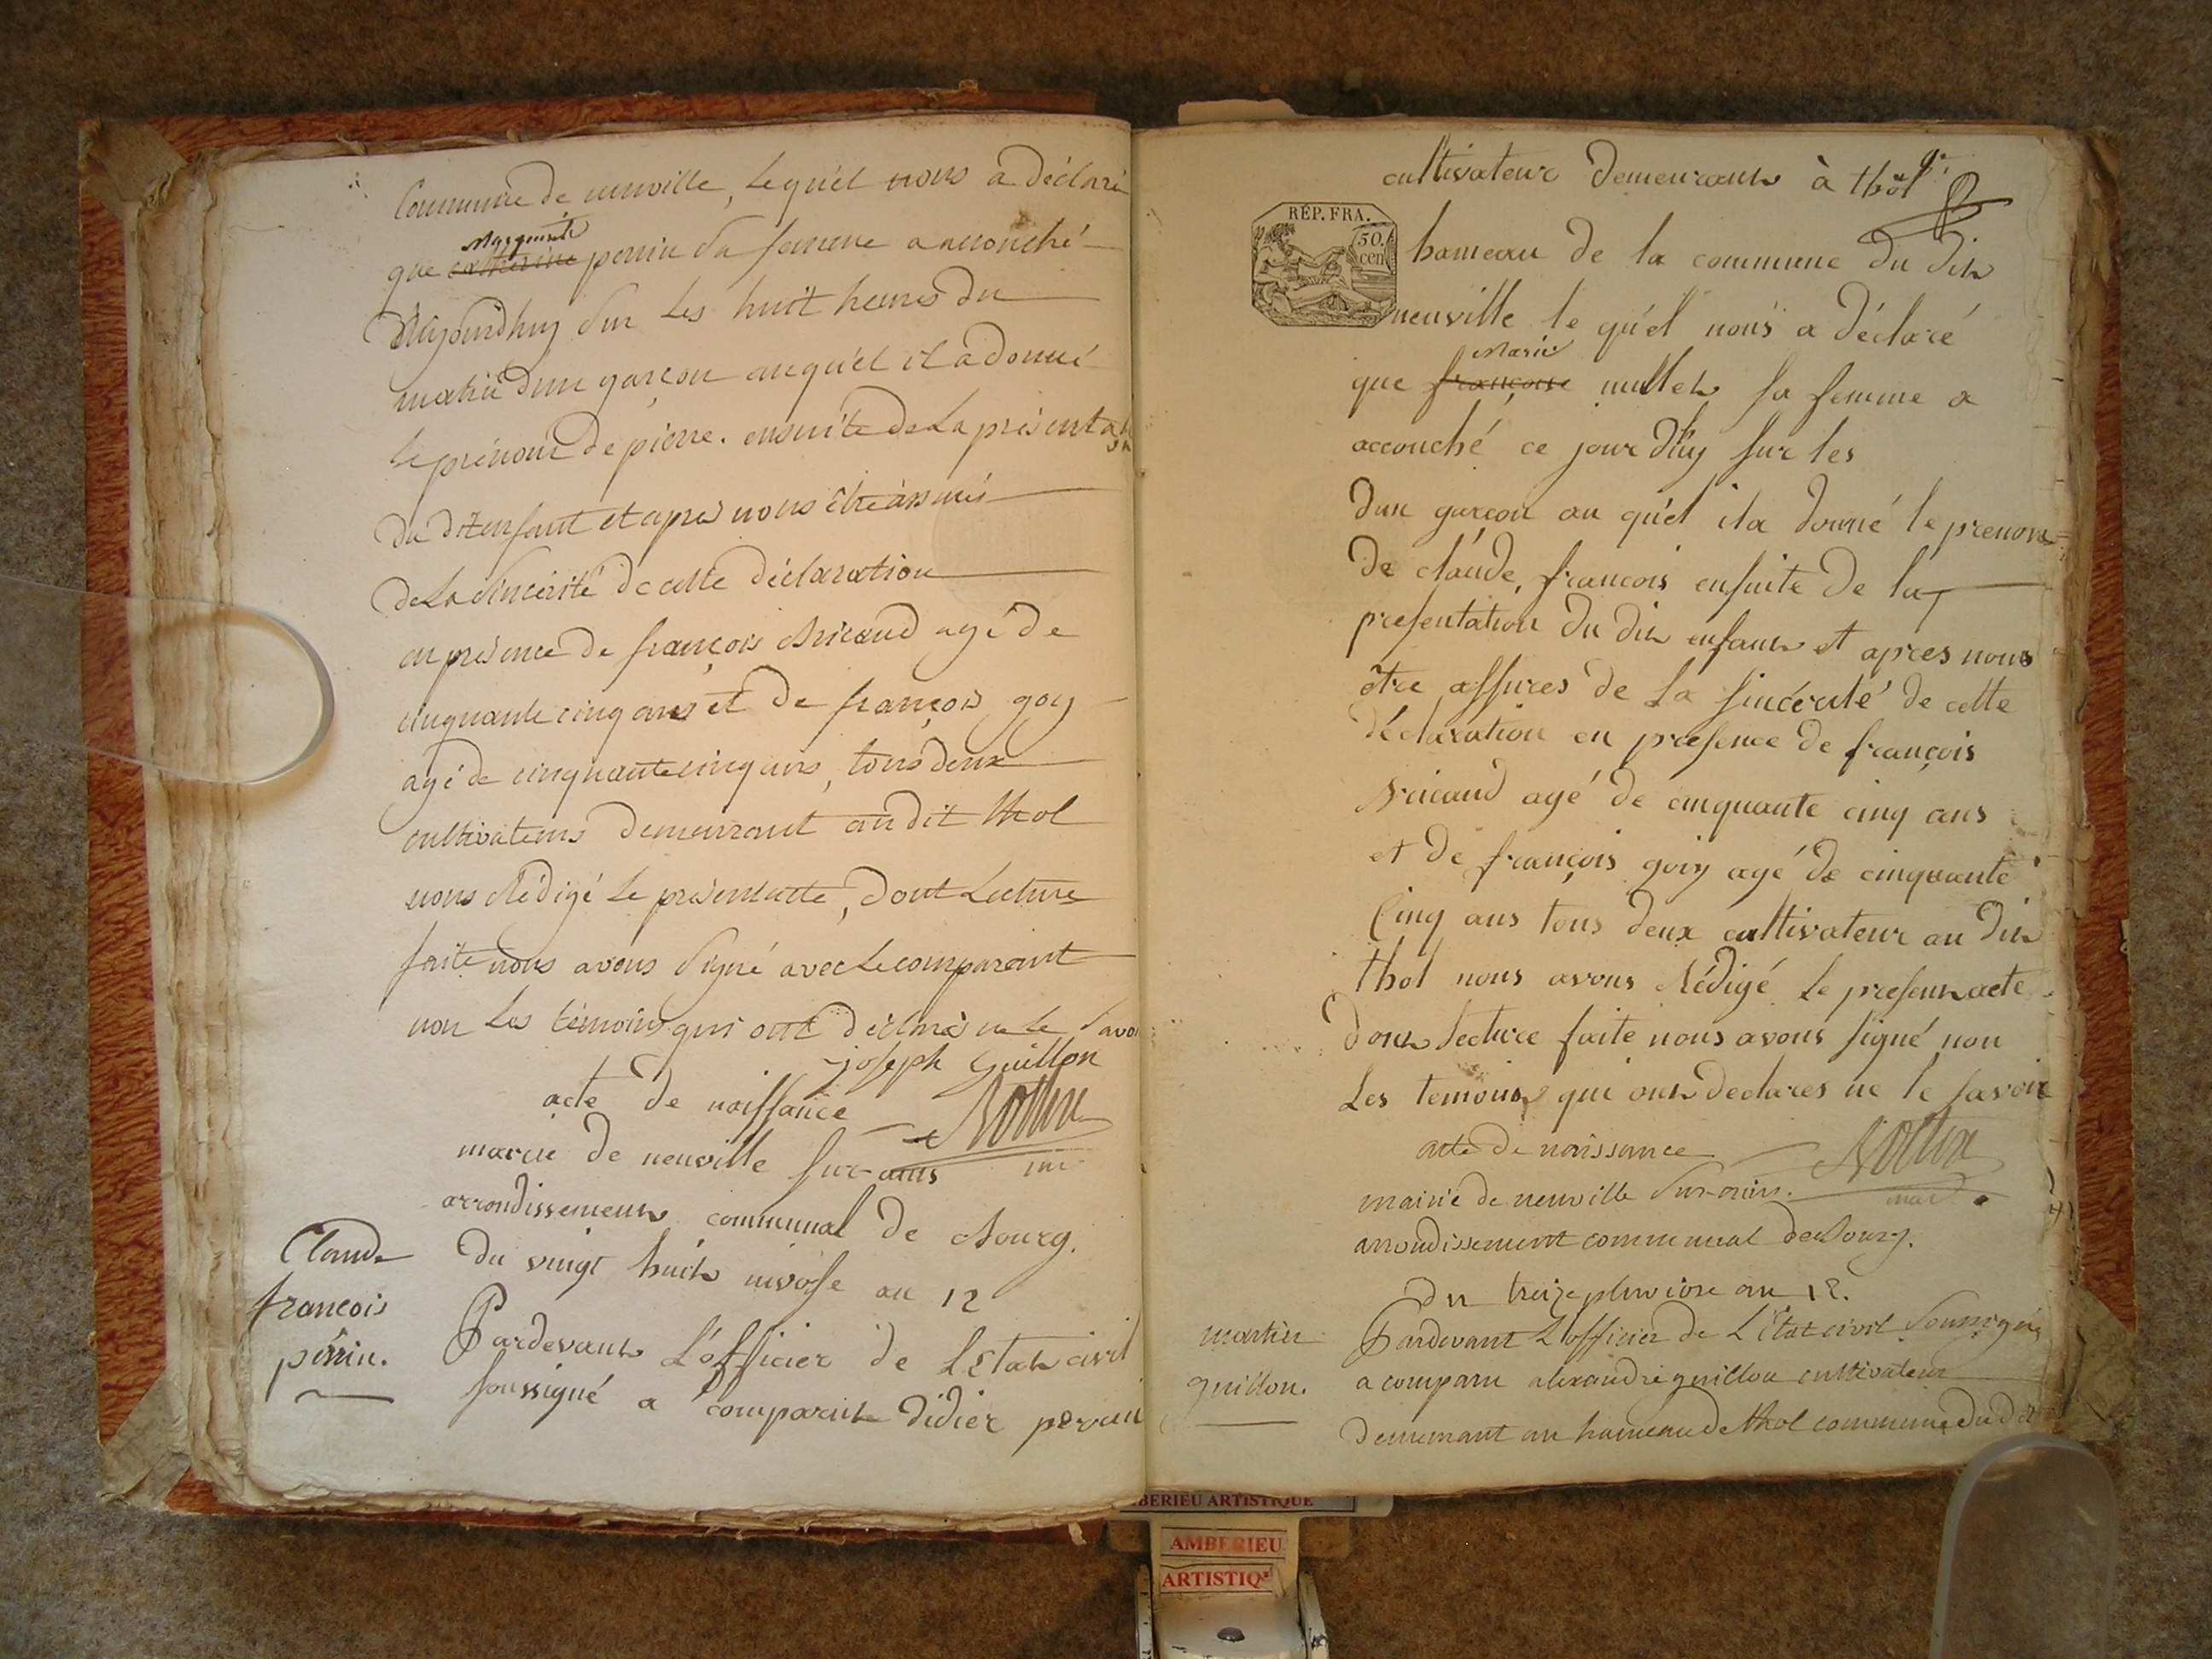 Commune de neuville, Lequ'el nous a déclaré
Marguerite
que catherine perrin Sa femme a accouché
Aujourdhuy Sur Les huit heures du
matin d'un garçon auqu'el il a donné
Le prénom de pierre. ensuite de La présentation
du dit enfant et après nous être assurés
de La Sincérité de cette déclaration
en présence de françois Bricaud agé de
cinquante cinq ans et de françois goy
agé de cinquante cinq ans, tous deux
cultivateurs demeurant au dit thol
nous Rédigé Le présent acte, dont Lecture
faite nous avons Signé avec Le comparant
non Les témoins qui ont déclaré ne le Savoir
joseph Guillon
acte de naissance
mairie de neuville sur ains
arrondissement communal de Bourg.
Claude
françois
perrin.
Du vingt huit nivose an 12
Pardevant L'officier de L'Etat civil
soussigné a comparut didier perrin
cultivateur demeurant à thol
RÉP. FRA.
50.
cen
hameau de la commune du dit
neuville le qu'el nous a déclaré
Marie
que françoise mullet sa femme a
accouché ce jour d'huy sur les
d'un garçon au qu'el il a donné le prenom
de claude, francois ensuite de la
presentation du dit enfant et apres nous
être assures de La sincérité de cette
déclaration en presence de françois
Bricaud agé de cinquante cinq ans
et de françois goiy agé de cinquante
Cinq ans tous deux cultivateur au dit
thol nous avons Rédigé le present acte
dont lecture faite nous avons signé non
Les temoins qui ont declares ne le savoir
acte de naissance
mairie de neuville Sur-ains.
arrondissement communal de Bourg.
Du treize pluviose an 12.
martin
guillon.
Pardevant L'officier de L'Etat civil Soussigné
a comparu alexandre guillon cultivateur
demeurant au hameau de thol commune du dit
BERIEU ARTISTIQUE
AMBERIEU
ARTISTIQ